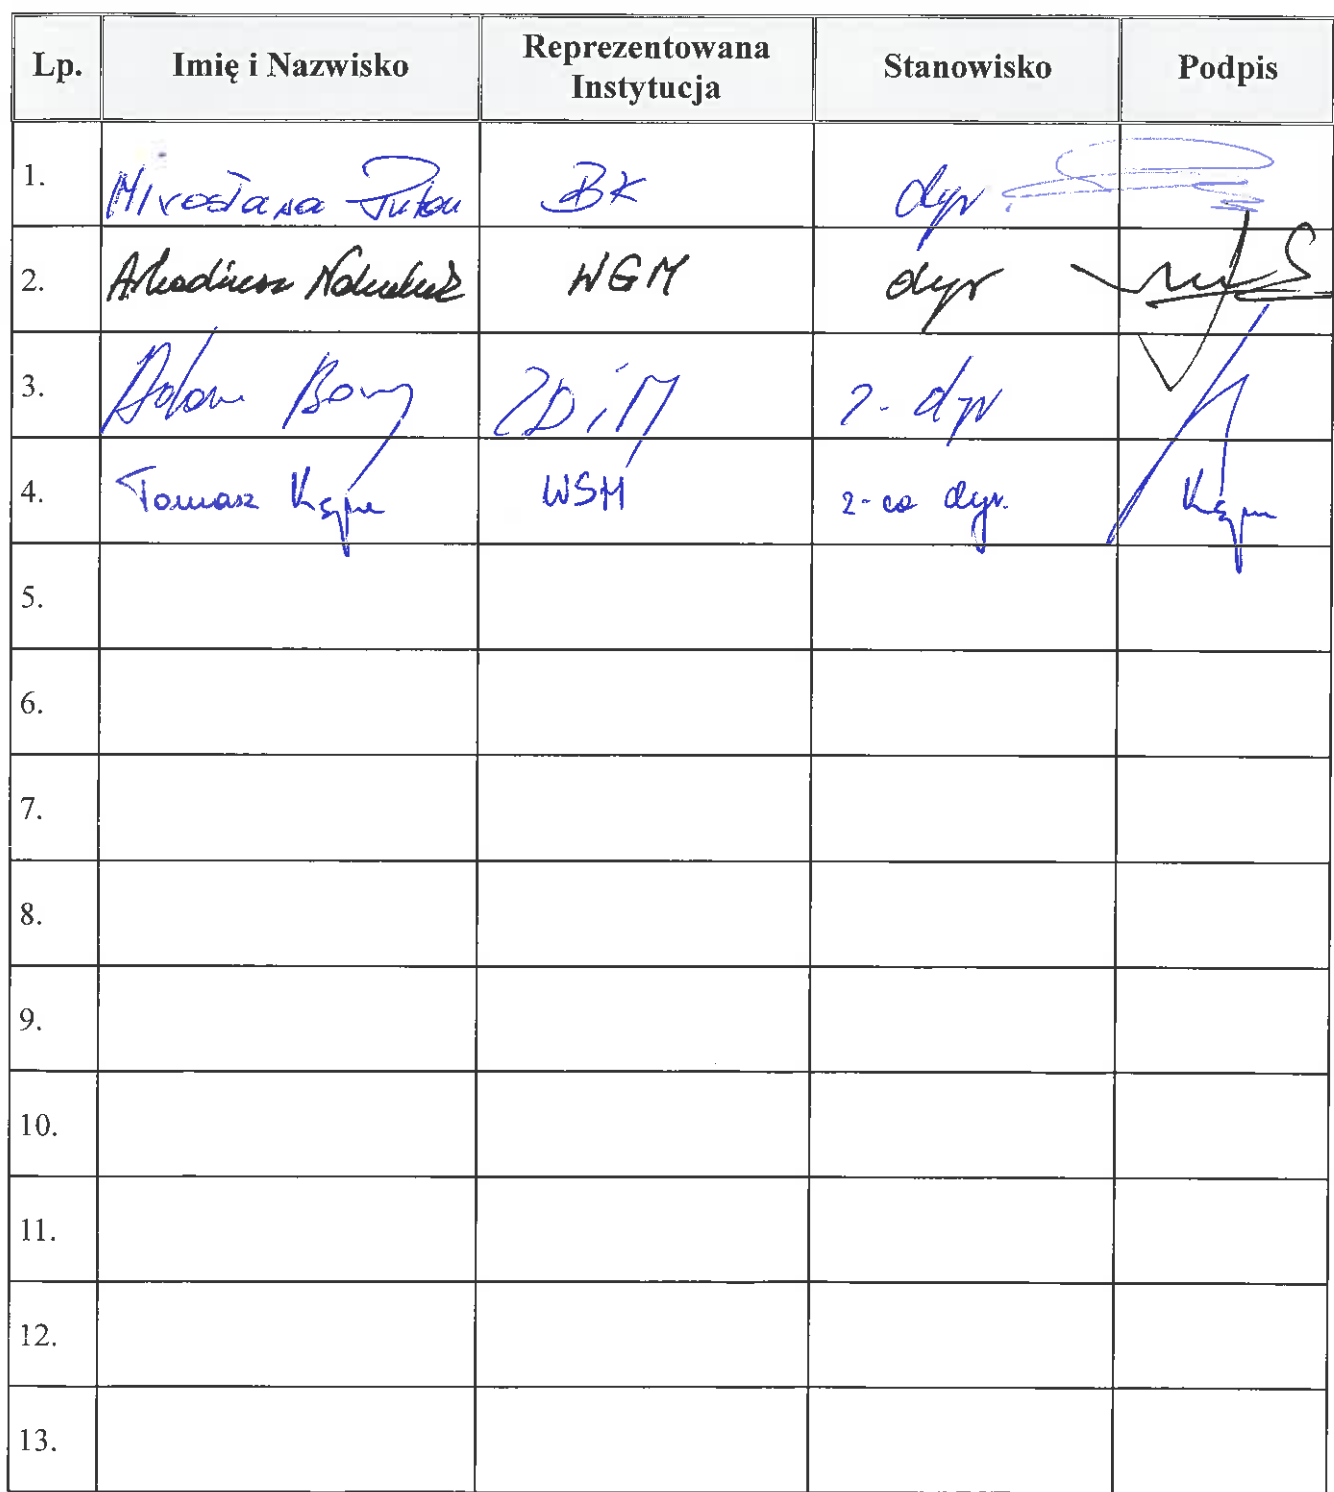 Lp. Imię i Nazwisko Reprezentowana Instytucja Stanowisko Podpis
1. Mirosława BK dyr.
2. Arkadiusz WGM dyr
3. Adam ZDiM z-dyr
4. Tomasz WSM z-ca dyr.
5.
6.
7.
8.
9.
10.
11.
12.
13.